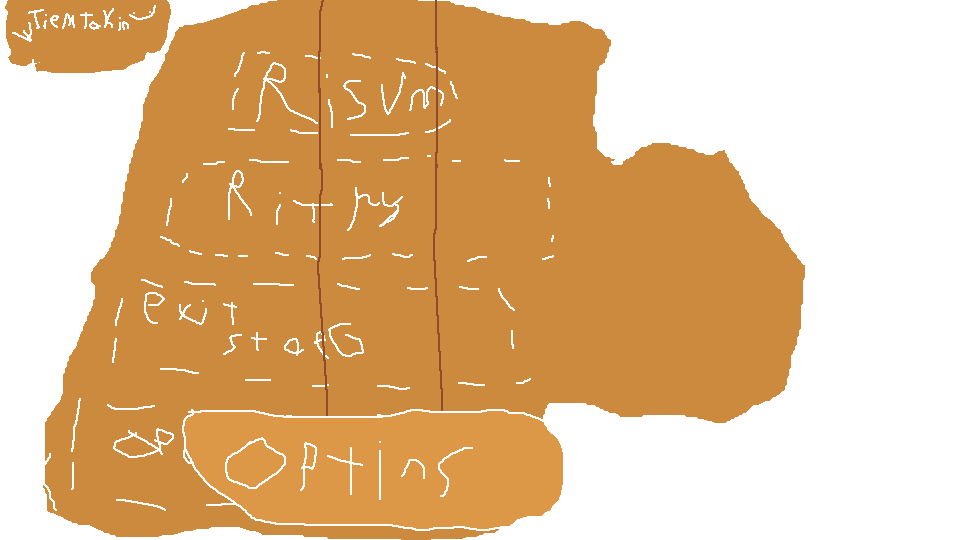 TiemTakin
Risum
Ritry
exit
staG
op
Optins